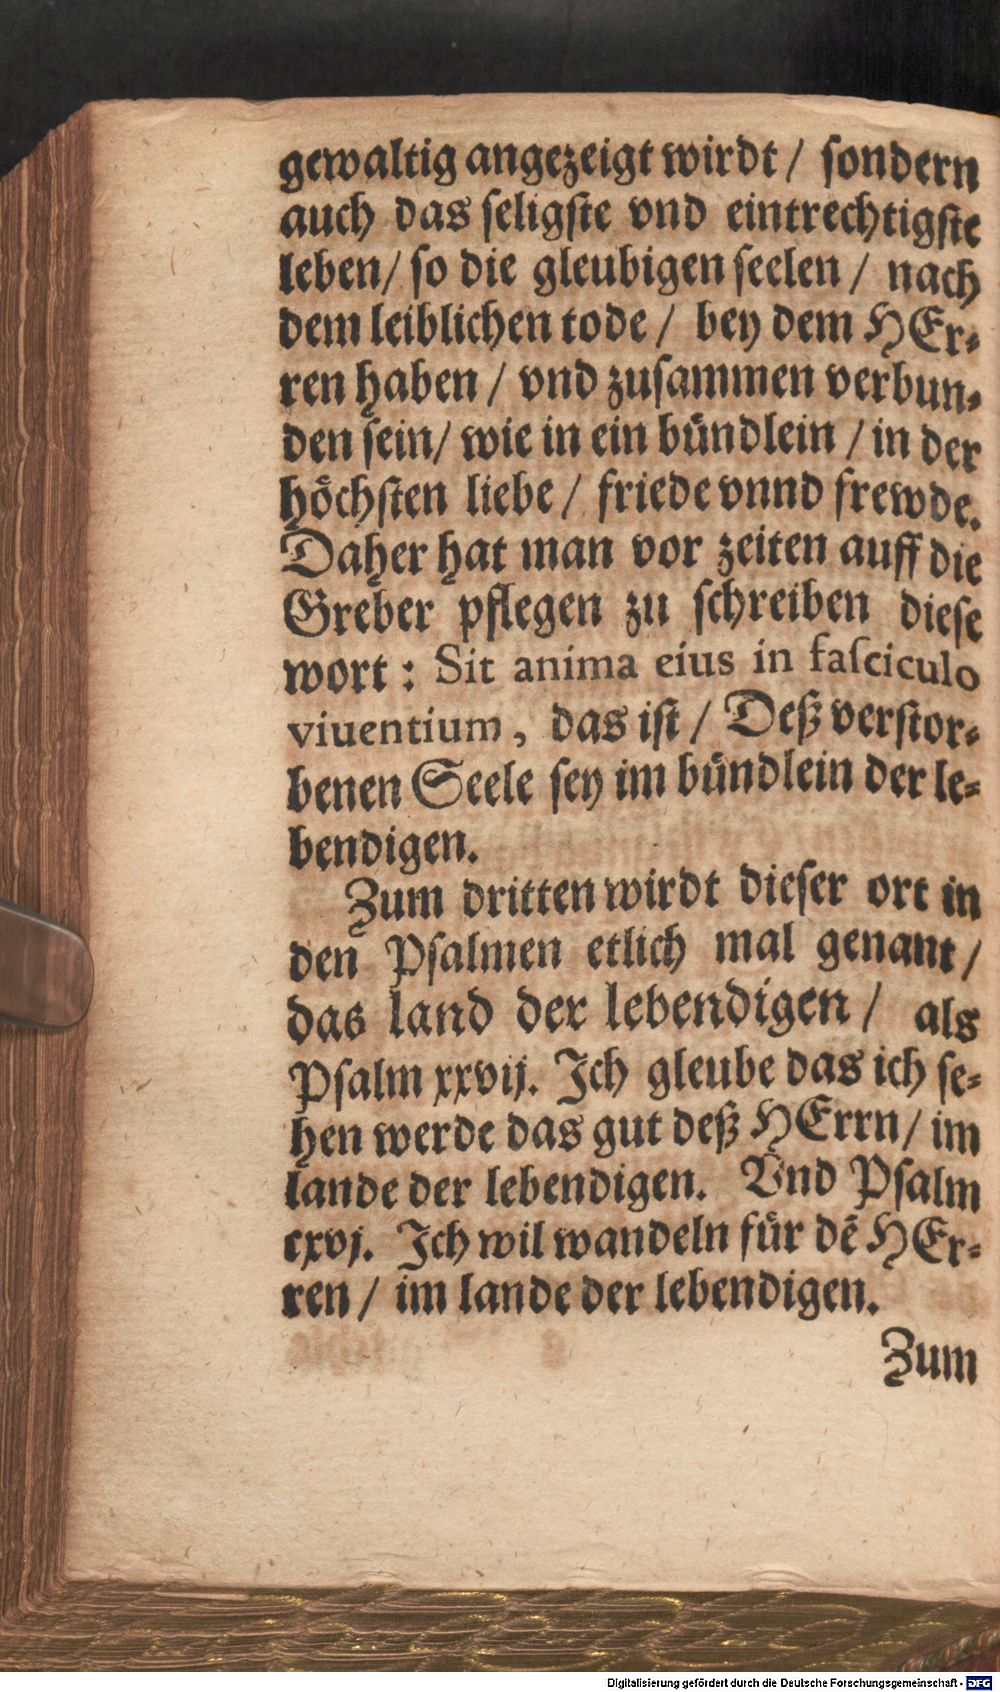 gewaltig angezeigt wirdt / sondern
auch das seligste vnd eintrechtigste
leben / so die gleubigen seelen / nach
dem leiblichen tode / bey dem HEr⸗
ren haben / vnd zusammen verbun⸗
den sein / wie in ein bündlein / in der
höchsten liebe / friede vnnd frewde.
Daher hat man vor zeiten auff die
Greber pflegen zu schreiben diese
wort : Sit anima eius in fasciculo
viuentium, das ist / Deß verstor⸗
benen Seele sey im bündlein der le⸗
bendigen.
Zum dritten wirdt dieser ort in
den Psalmen etlich mal genant /
das land der lebendigen / als
Psalm xxvij. Ich gleube das ich se⸗
hen werde das gut deß HErrn / im
lande der lebendigen. Vnd Psalm
cxvj. Ich wil wandeln für dē HEr⸗
ren / im lande der lebendigen.
Zum
Digitalisierung gefördert durch die Deutsche Forschungsgemeinschaft - DFG